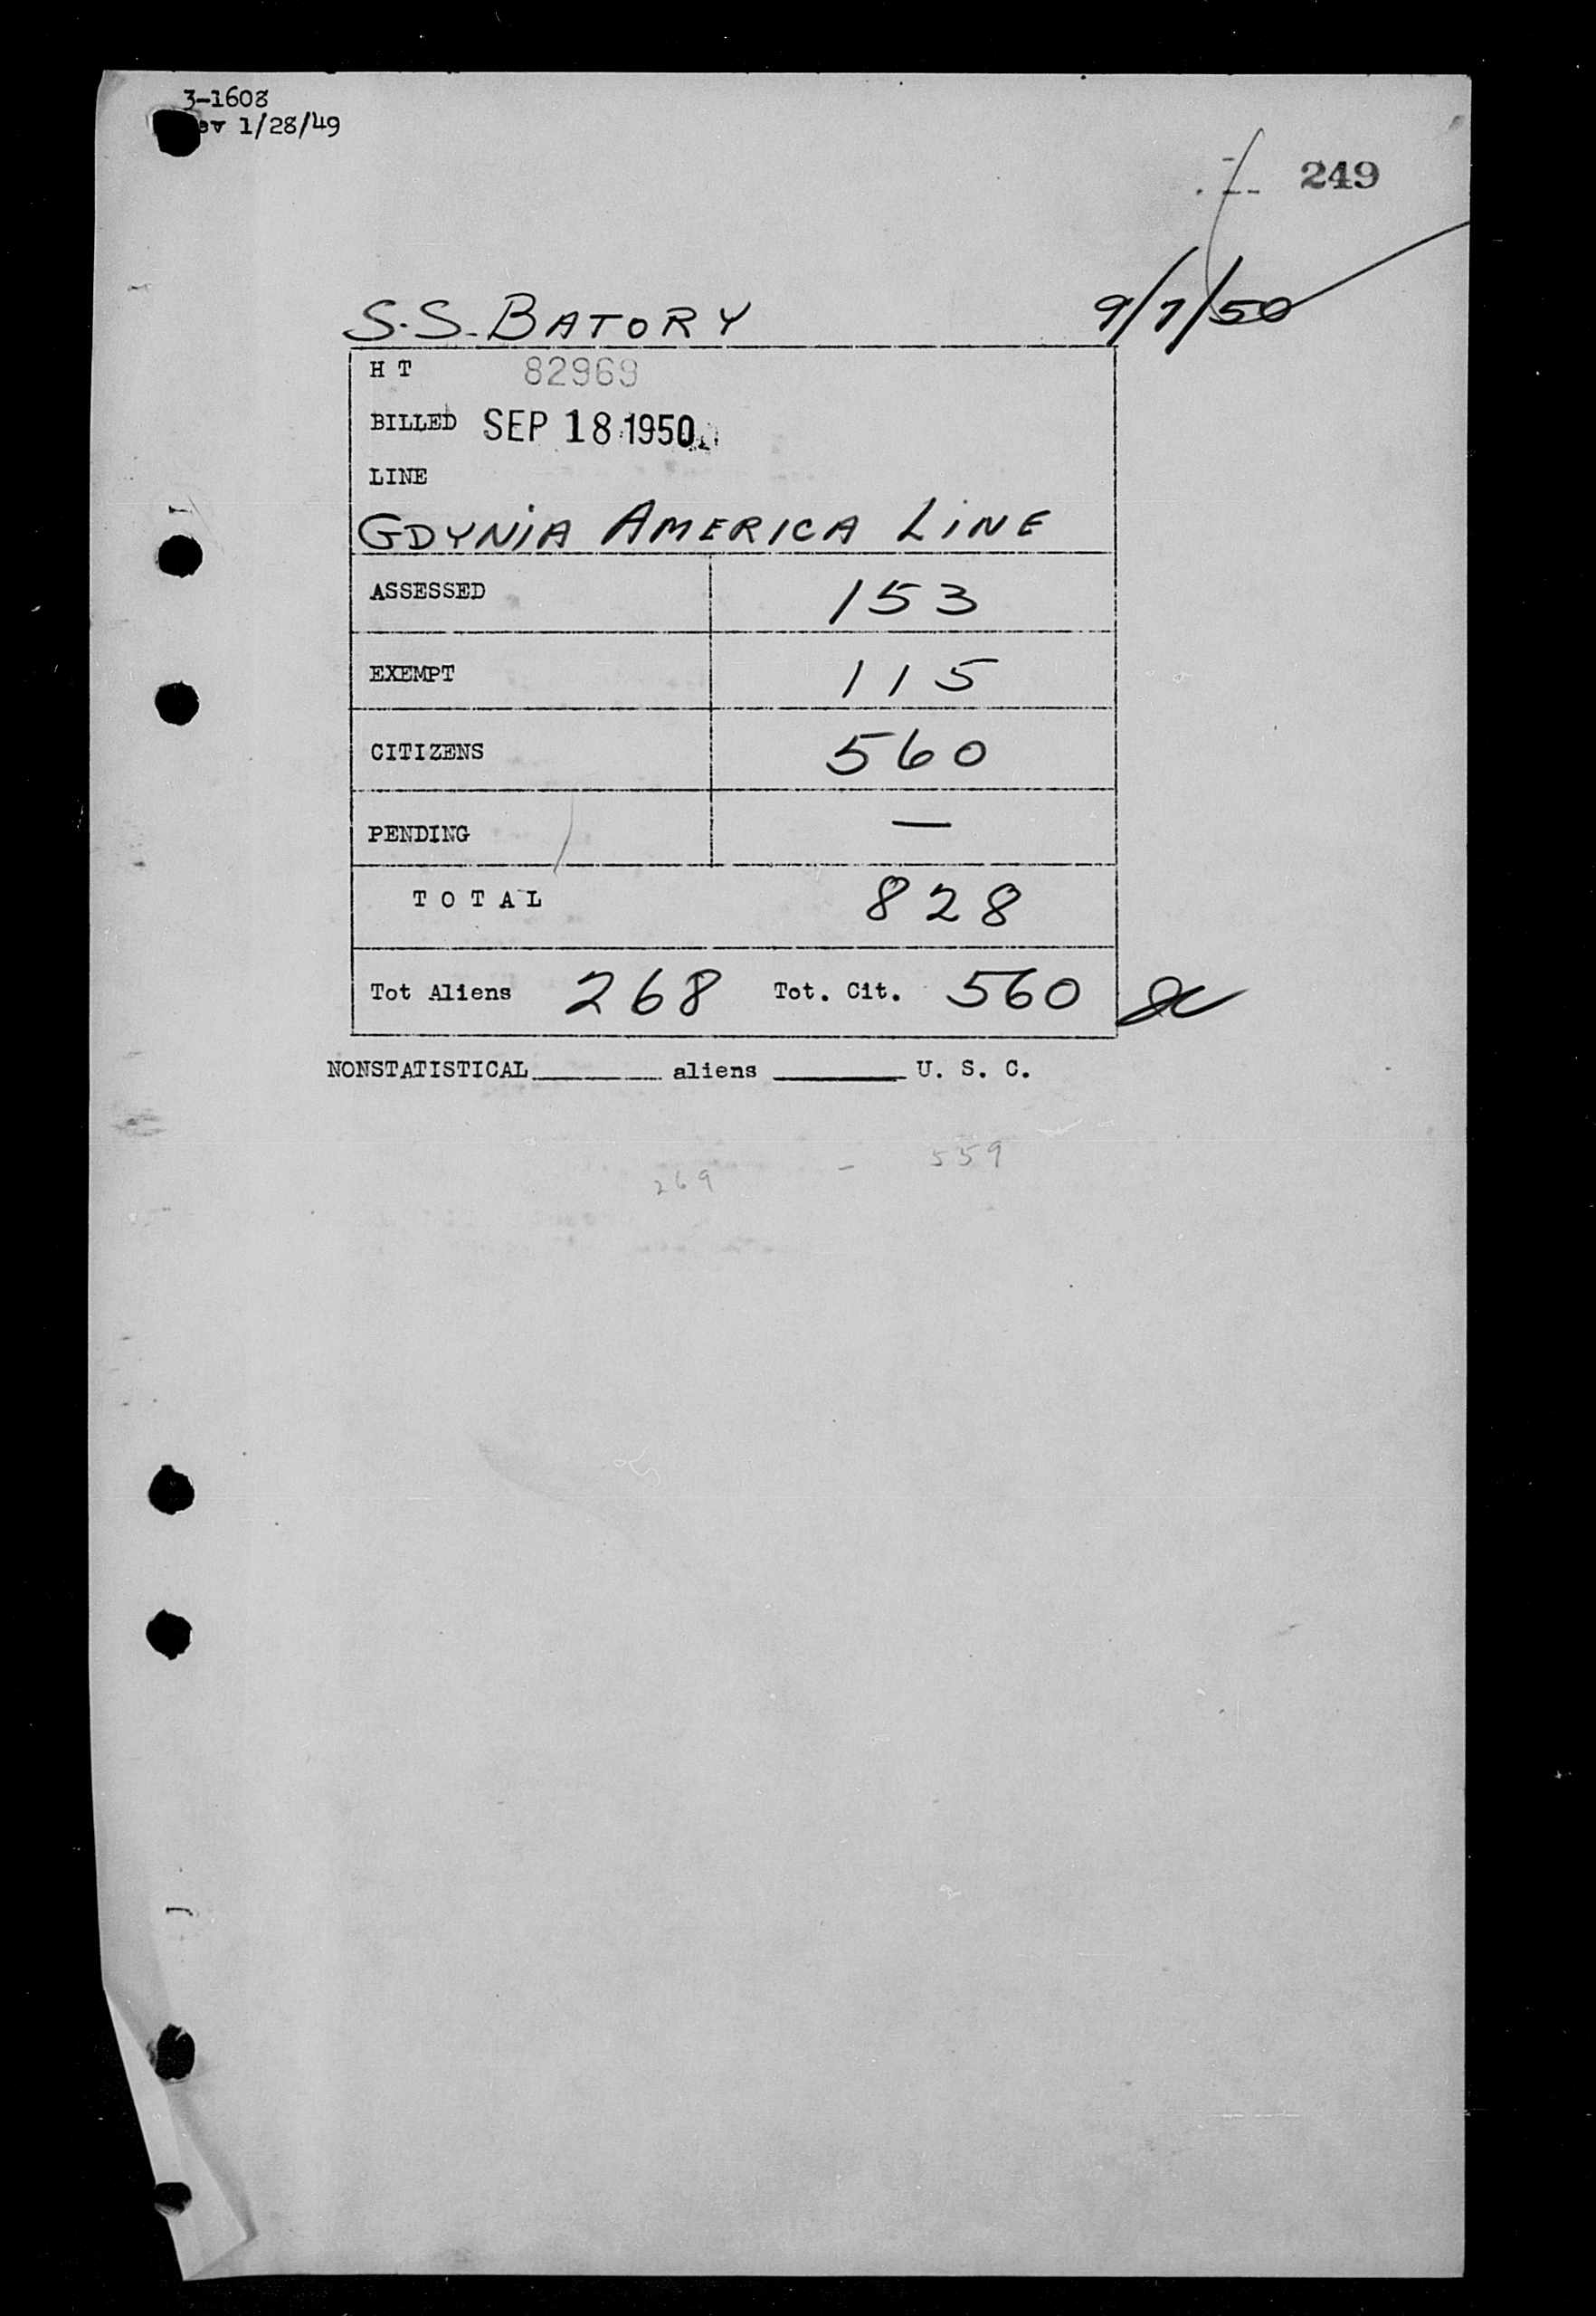 3-1608
ev 1/28/49
249
S.S. BATORY 9/7/50
H T 82969
BILLED SEP 18 1950
LINE
GDYNIA AMERICA LINE
ASSESSED 153
EXEMPT 115
CITIZENS 560
PENDING —
TOTAL 828
Tot Aliens 268 Tot. Cit. 560
NONSTATISTICAL______ aliens ______ U. S. C.
269 - 559